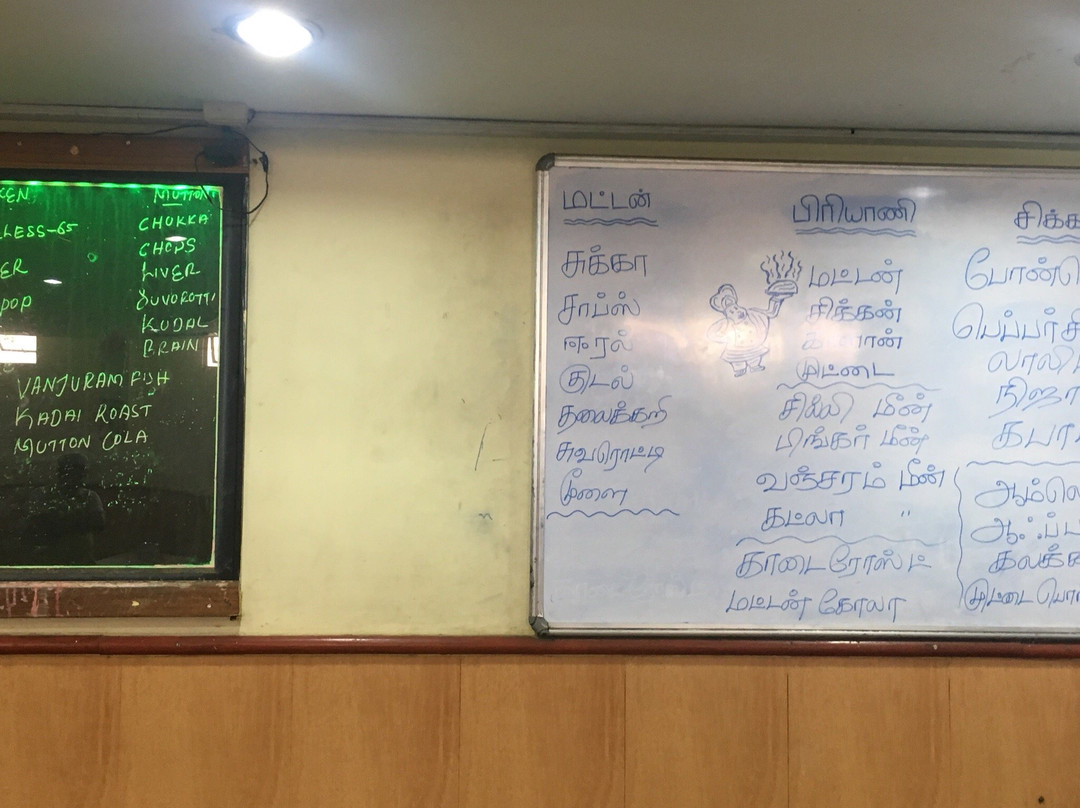 MUTTON
LESS-65
CHUKKA
CHOPS
LIVER
POP
SUVOROTTI
KUDAL
BRAIN
VANJURAM FISH
KADAI ROAST
MUTTON COLA
மட்டன்
சுக்கா
சாப்ஸ்
ஈரல்
குடல்
தலைக்கறி
சுவரொட்டி
மூளை
பிரியாணி
மட்டன்
சிக்கன்
முட்டை
சில்லி மீன்
பிங்கர் மீன்
வஞ்சரம் மீன்
கட்லா "
காடை ரோஸ்ட்
மட்டன் கோலா
சிக்க
போண்லெ
பெப்பர் சி
லாலி
நிஜா
கபா
ஆம்லெ
ஆஃப்
கலக்
முட்டை பொ